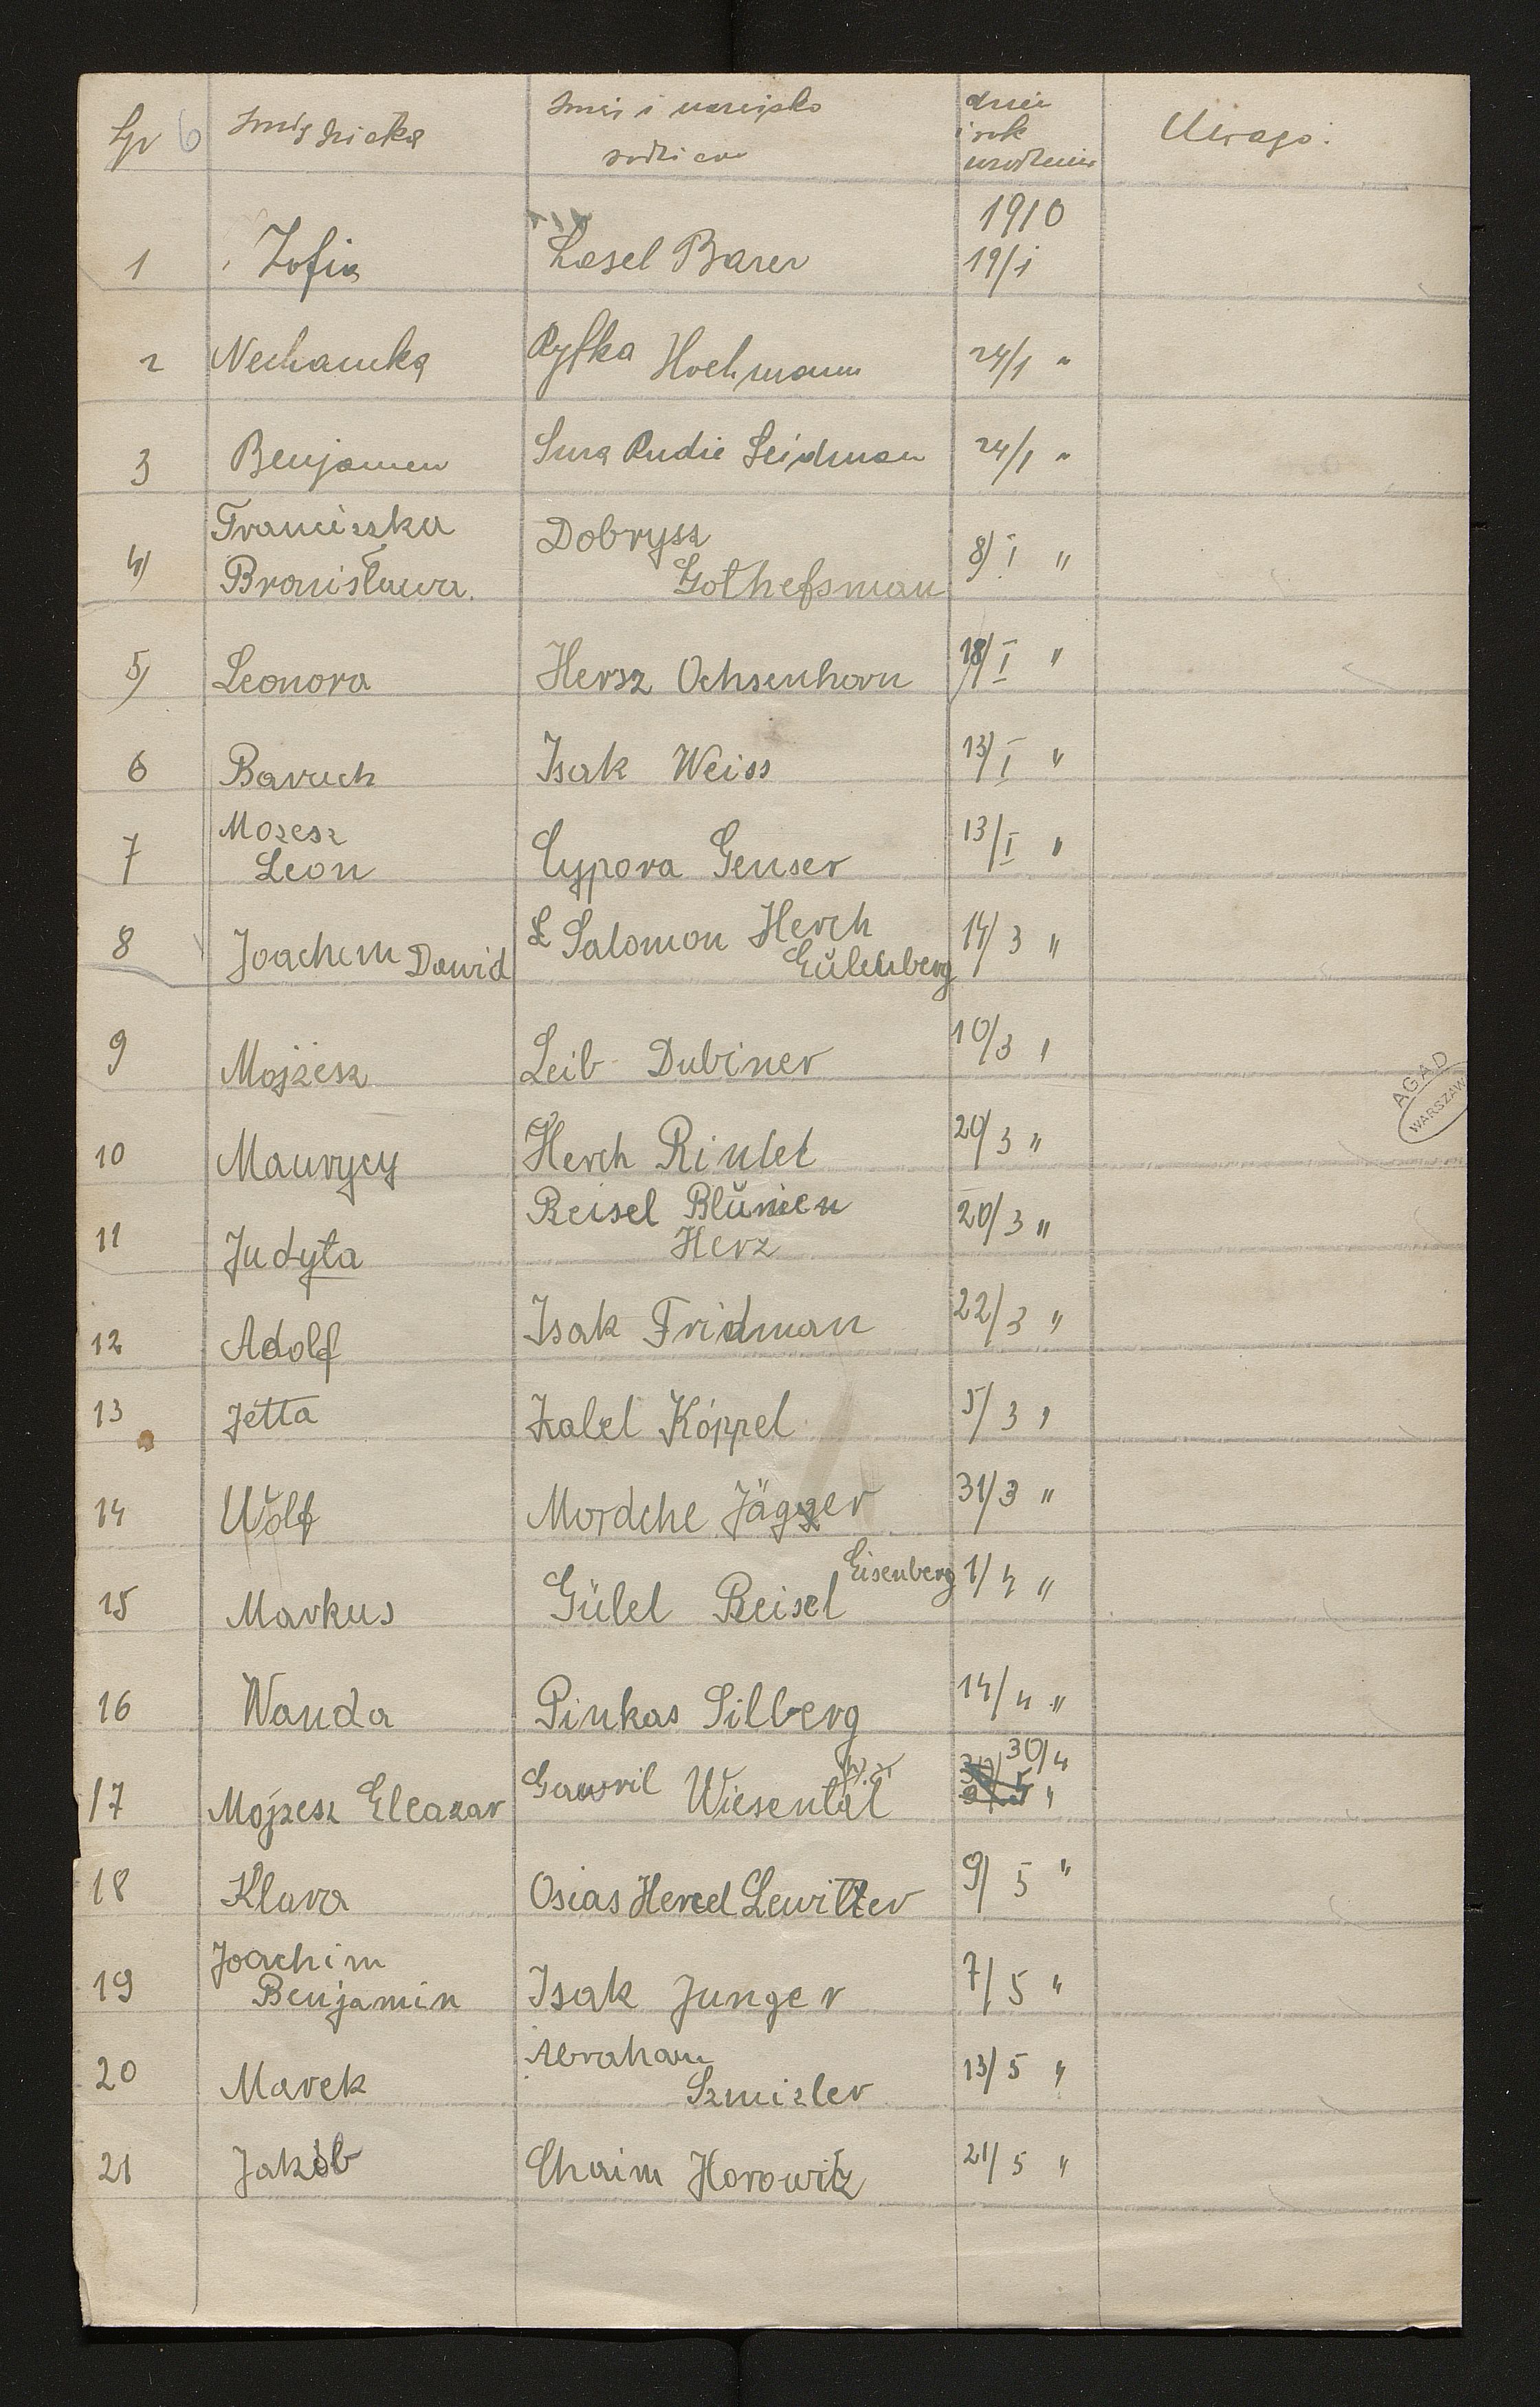 Lp 6 Imię dziecka Imię i nazwisko dzień Uwaga:
rodziców i rok
urodzenia
1910
1 Zofia Lasel Barer 19/I
2 Nechamka Ryfka Hochmann 24/1 "
3 Benjamen Sura Rudie Seidman 24/1 "
Franciszka Dobrysz
4) Bronisława. Gothefsman 8/I "
5) Leonora Hersz Ochsenhorn 18/I "
6 Baruch Isak Weiss 13/I "
Mozesz
7 Leon Cypora Genser 13/I "
8 Joachem Dawid Salomon Herch 14/3 "
Eŭlenberg
9 Mojżesz Leib Dubiner 10/3 "
10 Maurycy Herch Rintel 20/3 "
11 Judyta Reisel Blŭmen 20/3 "
Herz
12 Adolf Isak Fridman 22/3 "
13 Jetta Izalel Köppel 5/3 "
14 Wolf Mordche Jäger 31/3 "
15 Markus Gülel Reisel Eisenberg 1/4 "
16 Wanda Pinkas Silberg 14/4 "
17 Mojzesz Eleazar Gawril Wiesental 30/4 "
18 Klara Osias Hersel Lewitter 9/5 "
Joachim
19 Benjamin Isak Junger 7/5 "
20 Marek Abraham 13/5 "
Szmizler
21 Jakób Chaim Horowitz 21/5 "
AGAD
WARSZAW